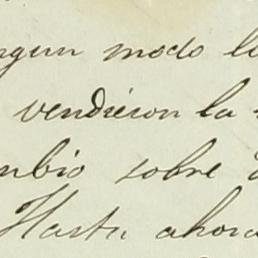 ngun modo l
vendieron la
mbio sobre
Hasta ahora